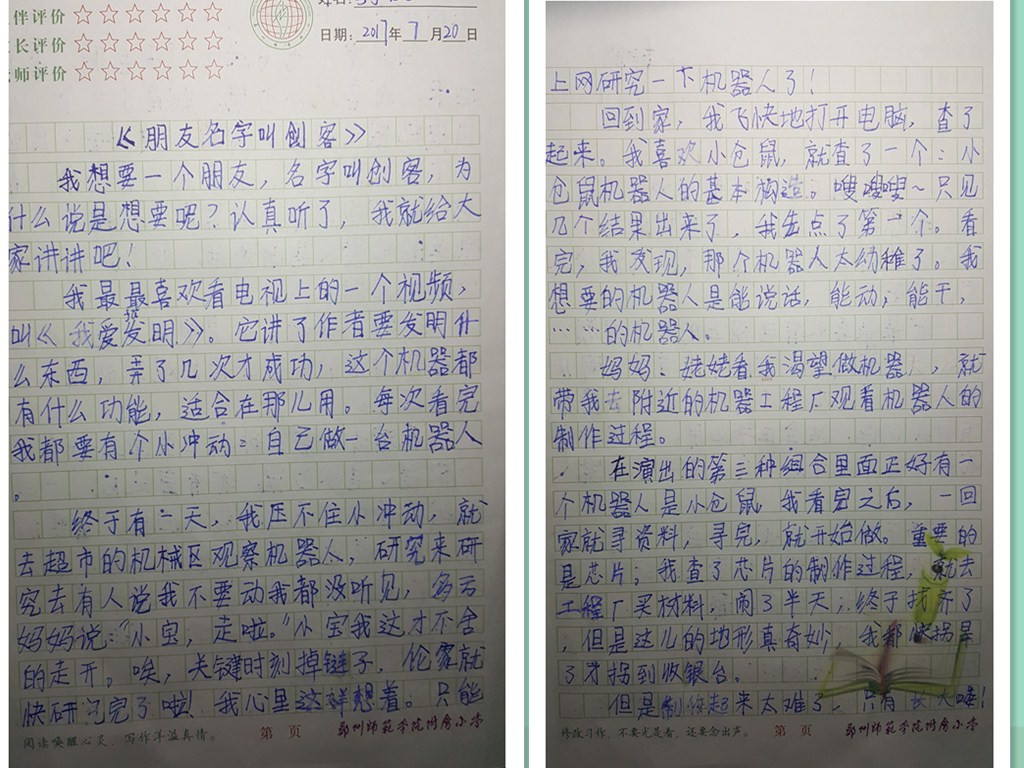 伴评价 ☆☆☆☆☆☆
长评价 ☆☆☆☆☆☆
师评价 ☆☆☆☆☆☆
日期：2017年7月20日
《朋友名字叫创客》
我想要一个朋友，名字叫创客，为
什么说是想要呢？认真听了，我就给大
家讲讲吧！
我最最喜欢看电视上的一个视频，
叫《我爱发明》。它讲了作者要发明什
么东西，弄了几次才成功，这个机器都
有什么功能，适合在那儿用。每次看完
我都要有个小冲动：自己做一台机器人
。
终于有一天，我压不住小冲动，就
去超市的机械区观察机器人，研究来研
究去有人说我不要动我都没听见，多亏
妈妈说："小宝，走啦。"小宝我这才不舍
的走开。唉，关键时刻掉链子，伦家就
快研究完了啦！我心里这样想着。只能
阅读唤醒心灵，写作洋溢真情。
第 页
郑州师范学院附属小学
上网研究一下机器人了！
回到家，我飞快地打开电脑，查了
起来。我喜欢小仓鼠，就查了一个：小
仓鼠机器人的基本构造。嗖嗖嗖～只见
几个结果出来了，我先点了第一个。看
完，我发现，那个机器人太幼稚了。我
想要的机器人是能说话，能动，能干，
……的机器人。
妈妈、姥姥看我渴望做机器人，就
带我去附近的机器工程厂观看机器人的
制作过程。
在演出的第三种组合里面正好有一
个机器人是小仓鼠，我看完之后，一回
家就寻资料，寻完，就开始做。重要的
是芯片；我查了芯片的制作过程，就去
工程厂买材料，闹了半天，终于找齐了
，但是这儿的地形真奇妙，我都快拐晕
了才拐到收银台。
但是制做起来太难了，只有长大喽！
修改习作，不要光是看，还要念出声。
第 页
郑州师范学院附属小学